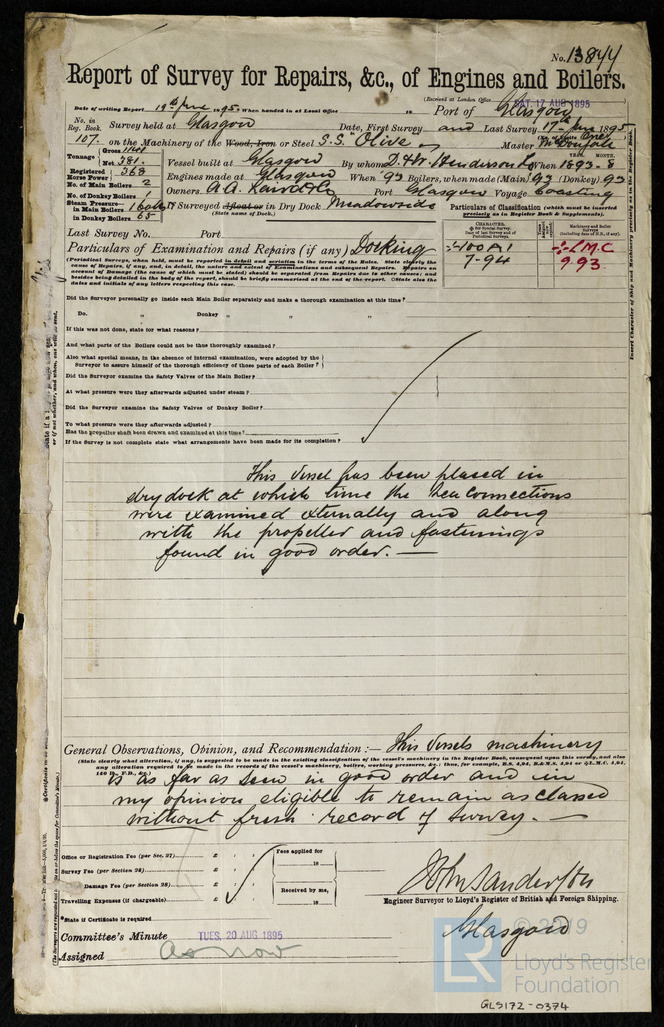 No. 13844
Report of Survey for Repairs, &c., of Engines and Boilers.
(Received at London Office SAT. 17 AUG 1895
Date of writing Report 19th June 1895. When handed in at Local Office 18 Port of Glasgow
No. in Reg. Book. 107. Survey held at Glasgow Date, First Survey and Last Survey 17th June 1895
on the Machinery of the Wood, Iron or Steel S.S. "Olive" Master
Tonnage Gross 1141 Net 381. Vessel built at Glasgow By whom D. & W. Henderson & Co When 1893-8
YEAR. MONTH.
Registered Horse Power 268 Engines made at Glasgow When '93 Boilers, when made (Main) 93 (Donkey) 93
No. of Main Boilers 2
No. of Donkey Boilers 1 Owners A. A. Laird & Co. Port Glasgow Voyage Coasting
Steam Pressure— in Main Boilers 160 lbs in Donkey Boilers 65 If Surveyed Afloat or in Dry Dock Meadowside
(State name of Dock.)
Particulars of Classification (which must be inserted precisely as in Register Book & Supplements).
Last Survey No. Port
Particulars of Examination and Repairs (if any) Docking
100 A1
7-94
L.M.C
9.93
(Periodical Surveys, when held, must be reported in detail and seriatim in the terms of the Rules. State clearly the cause of Repairs, if any, and, in detail, the nature and extent of Examinations and subsequent Repairs. Repairs on account of Damage (the cause of which must be stated) should be separated from Repairs due to other causes; and besides being detailed in the body of the report, should be briefly summarised at the end of the report. State also the dates and initials of any letters respecting this case.
Did the Surveyor personally go inside each Main Boiler separately and make a thorough examination at this time?
Do. " Donkey " " "
If this was not done, state for what reasons?
And what parts of the Boilers could not be thus thoroughly examined?
Also what special means, in the absence of internal examination, were adopted by the
Surveyor to assure himself of the thorough efficiency of those parts of each Boiler?
Did the Surveyor examine the Safety Valves of the Main Boiler?
At what pressure were they afterwards adjusted under steam?
Did the Surveyor examine the Safety Valves of Donkey Boiler?
To what pressure were they afterwards adjusted?
Has the propeller shaft been drawn and examined at this time?
If the Survey is not complete state what arrangements have been made for its completion?
This vessel has been placed in
dry dock at which time the sea connections
were examined externally and along
with the propeller and fastenings
found in good order. —
General Observations, Opinion, and Recommendation :— This vessels machinery
(State clearly what alteration, if any, is suggested to be made in the existing classification of the vessel's machinery in the Register Book, consequent upon this survey, and also any alteration required to be made in the records of the vessel's machinery, boilers, working pressure, &c.; thus, for example, B.S. 4,94, B.&M.S. 4,94 or L.M.C. 4,94, 140 lb., F.D., &c.)
is as far as seen in good order and in
my opinion eligible to remain as classed
without fresh record of survey. —
Office or Registration Fee (per Sec. 27) £ : :
Survey Fee (per Section 28) £ : :
Damage Fee (per Section 28) £ : :
Travelling Expenses (if chargeable) £ : :
Fees applied for
18
Received by me,
18
John Sanderson
Engineer Surveyor to Lloyd's Register of British and Foreign Shipping.
*State if Certificate is required
Glasgow
Committee's Minute TUES. 20 AUG 1895
Assigned as now
© 2019
LR
Lloyd's Register
Foundation
GLS172-0374